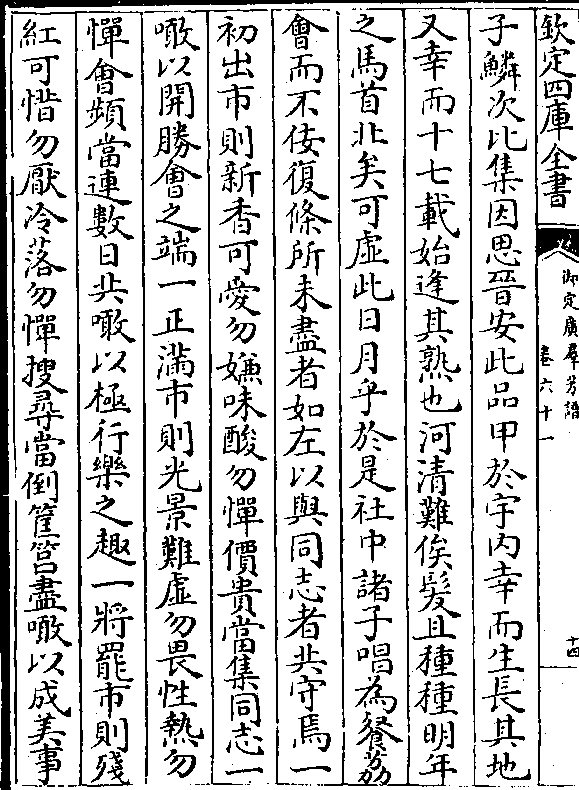 欽定四庫全書
御定廣羣芳譜
卷六十一
十四
子鱗次比集因思晉安此品甲於宇内幸而生長其地
又幸而十七載始逢其熟也河清難俟髮且種種明年
之馬首北矣可虛此日月乎於是社中諸子唱為餐荔
會而不佞復條所未盡者如左以與同志者共守焉一
初出市則新香可愛勿嫌味酸勿憚價貴當集同志一
噉以開勝會之端一正滿市則光景難虛勿畏性熱勿
憚會頻當連數日共噉以極行樂之趣一將罷市則殘
紅可惜勿厭冷落勿憚搜尋當倒筐筥盡噉以成美事